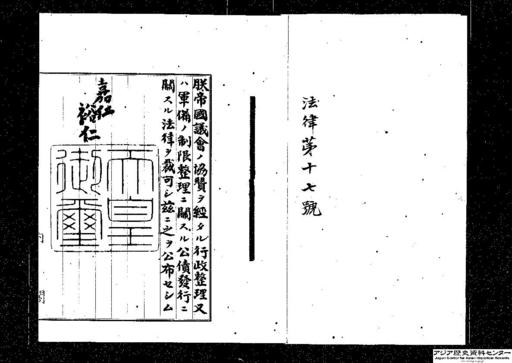 法律第十七號
朕帝國議會ノ協贊ヲ經タル行政整理又
ハ軍備ノ制限整理ニ關スル公債發行ニ
關スル法律ヲ裁可シ茲ニ之ヲ公布セシム
嘉仁
裕仁
天皇
御璽
アジア歴史資料センター
Japan Center for Asian Historical Records